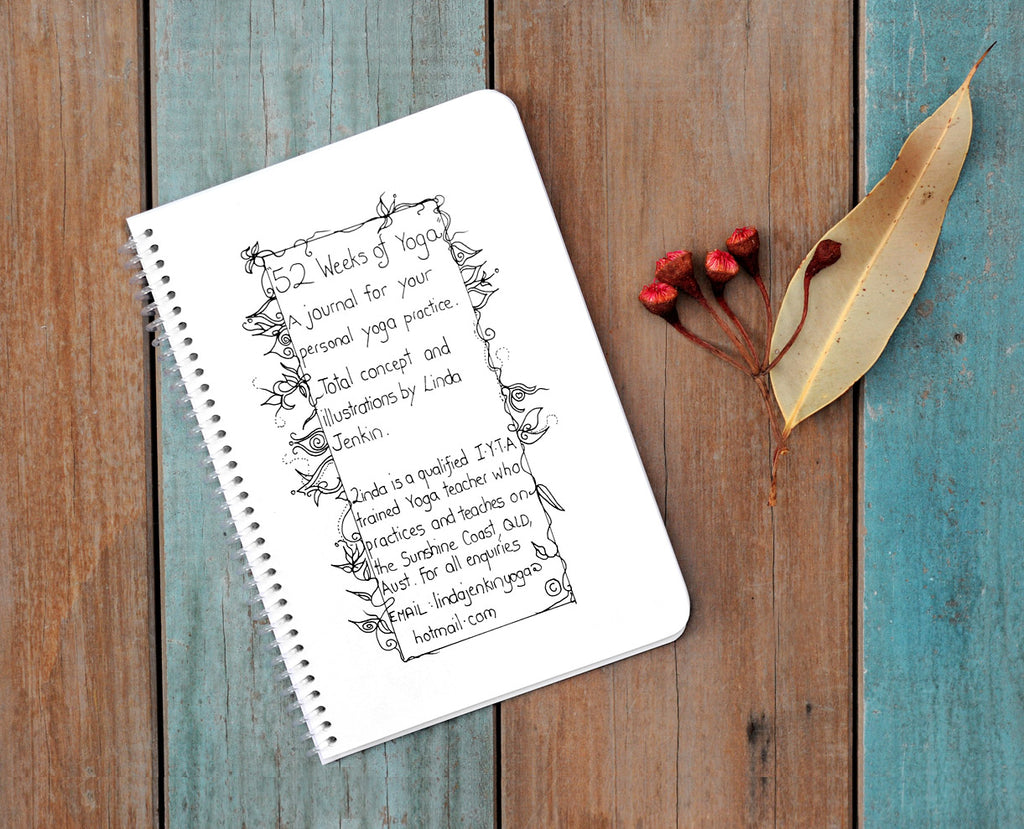 "52 Weeks of Yoga"
A journal for your
personal yoga practice.
Total concept and
illustrations by Linda
Jenkin.
Linda is a qualified I.Y.T.A
trained Yoga teacher who
practices and teaches on
the Sunshine Coast, QLD,
Aust. For all enquiries
EMAIL: lindajenkinyoga@
hotmail.com
©